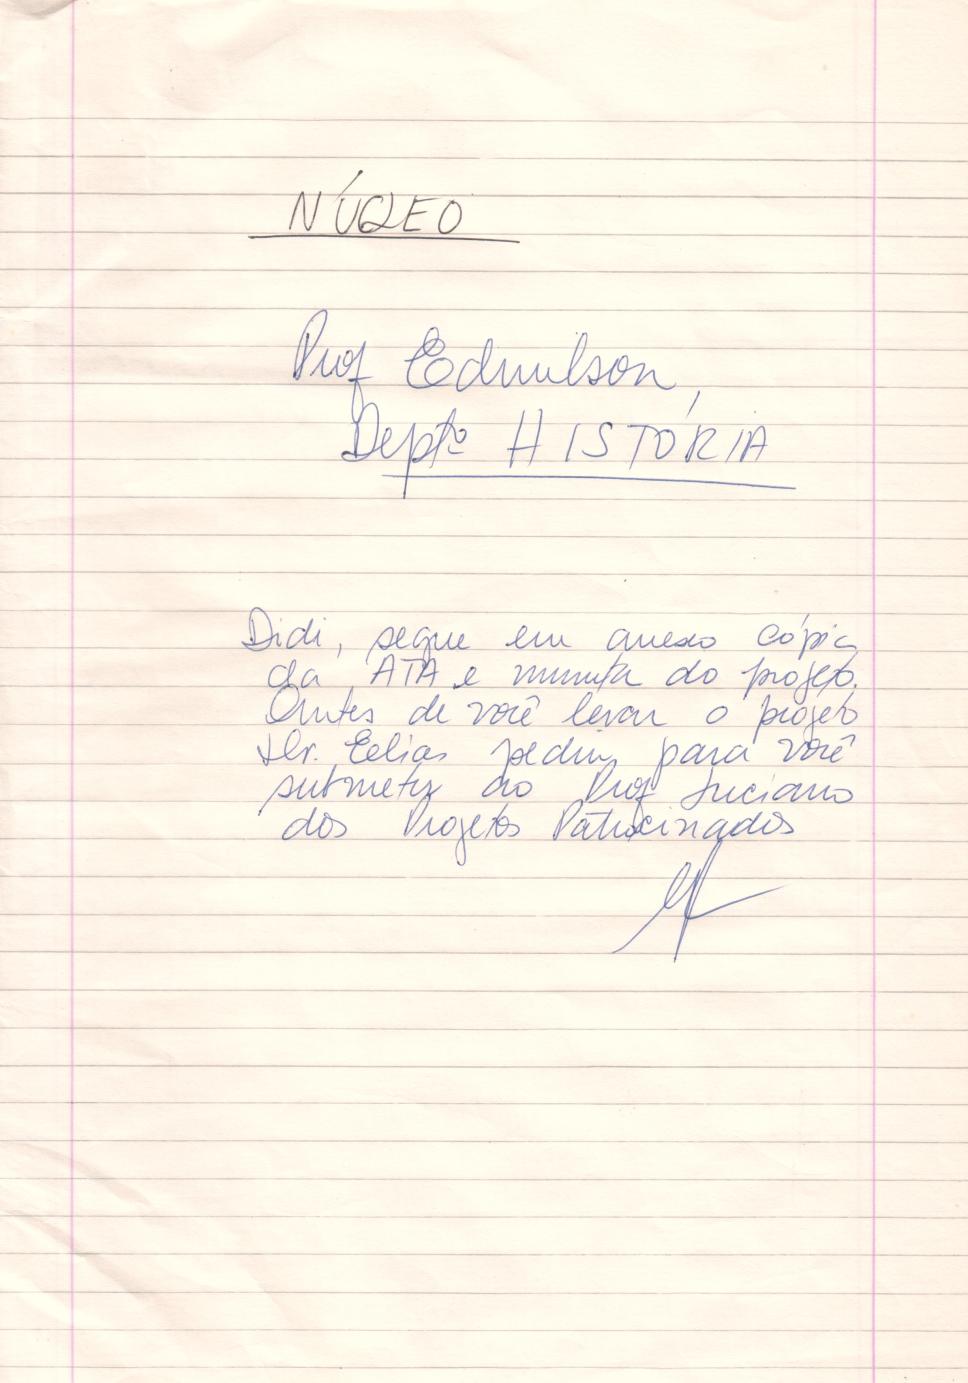 NÚCLEO
Prof Edmilson,
Deptº HISTÓRIA
Didi, segue em anexo cópia
da ATA e minuta do projeto.
Antes de você levar o projeto
Dr. Eelias pediu para você
submeter ao Prof Luciano
dos Projetos Patrocinados